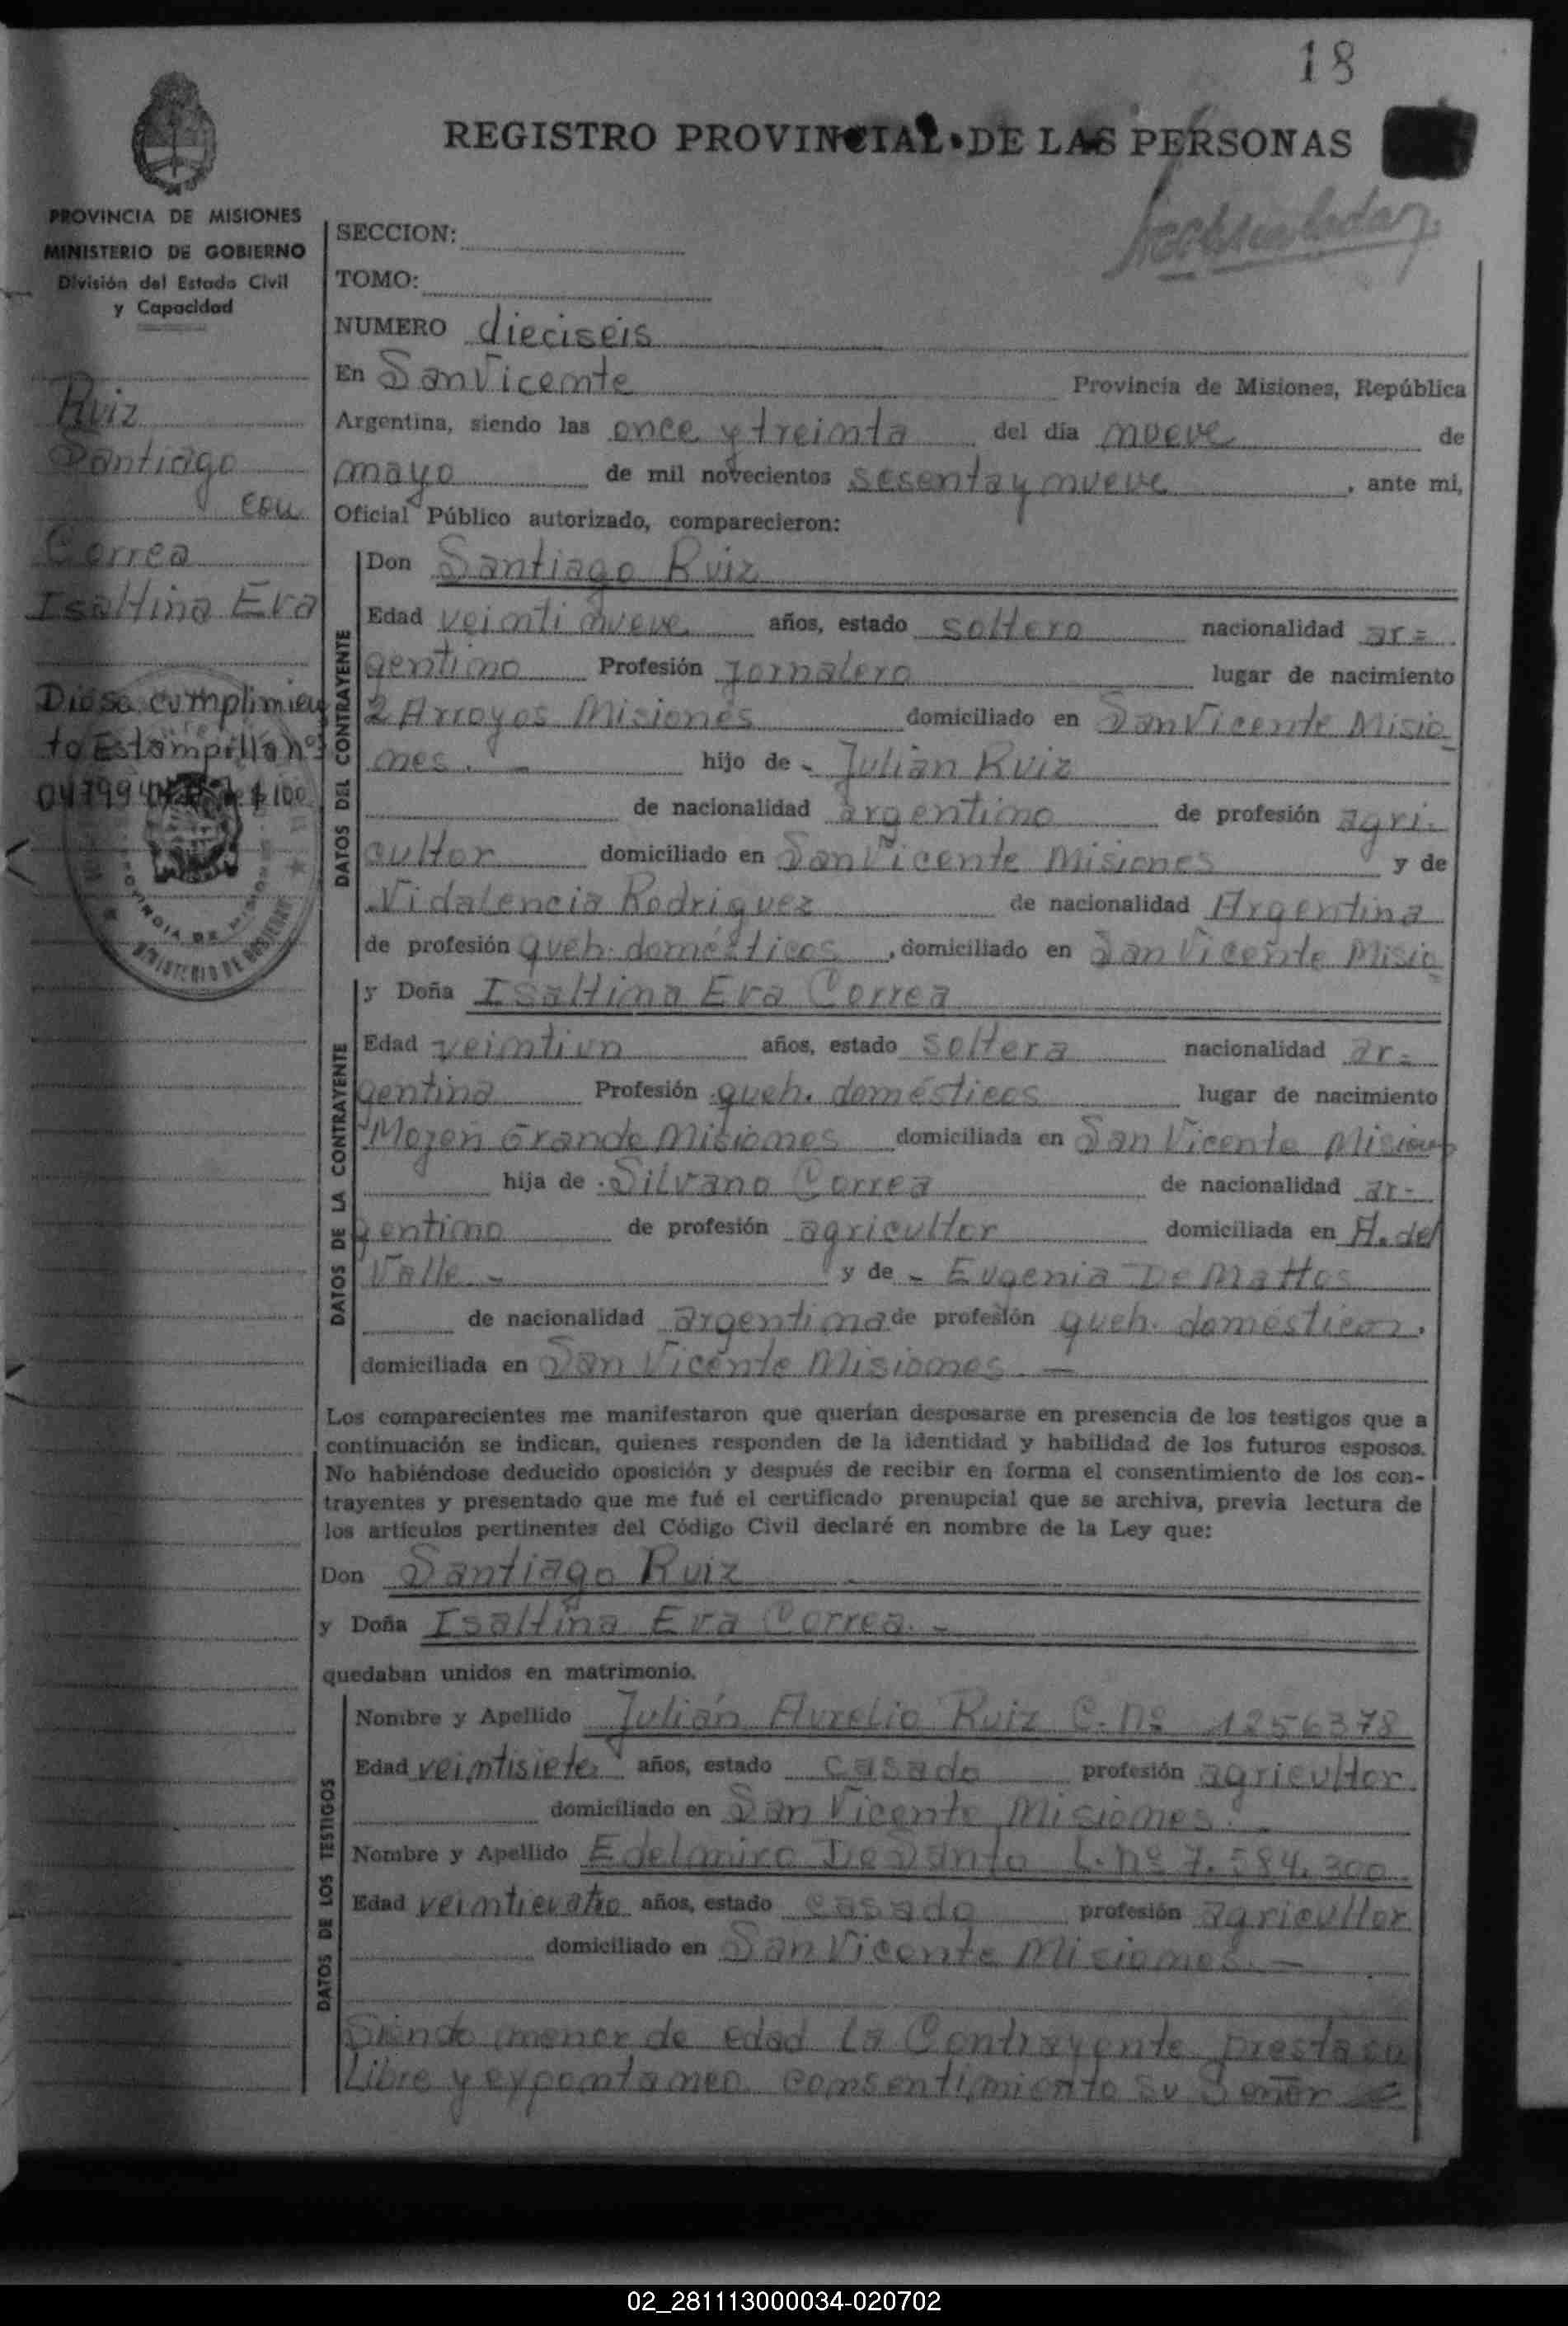 18
REGISTRO PROVINCIAL DE LAS PERSONAS
PROVINCIA DE MISIONES
MINISTERIO DE GOBIERNO
División del Estado Civil
y Capacidad
Ruiz
Santiago
con
Correa
Isaltina Eva
Diose cumplimien
to Estampilla nº
$ 100
PROVINCIA DE MISIONES
MINISTERIO DE GOBIERNO
SECCION:
TOMO:
NUMERO dieciseis
En San Vicente Provincia de Misiones, República
Argentina, siendo las once y treinta del día nueve de
mayo de mil novecientos sesenta y nueve, ante mi,
Oficial Público autorizado, comparecieron:
DATOS DEL CONTRAYENTE
Don Santiago Ruiz
Edad veinti nueve años, estado soltero nacionalidad ar=
gentino Profesión Jornalero lugar de nacimiento
2 Arroyos Misiones domiciliado en San Vicente Misio
nes. - hijo de - Julian Ruiz
de nacionalidad argentino de profesión agri-
cultor domiciliado en San Vicente Misiones y de
Vidalencia Rodriguez de nacionalidad Argentina
de profesión queh. domésticos, domiciliado en San Vicente Misio
DATOS DE LA CONTRAYENTE
y Doña Isaltina Eva Correa
Edad veintiun años, estado soltera nacionalidad ar-
gentina Profesión queh. domésticos lugar de nacimiento
Mojon Grande Misiones domiciliada en San Vicente Misiones
hija de Silvano Correa de nacionalidad ar-
gentino de profesión agricultor domiciliada en A. del
Valle - y de - Eugenia De Mattos
de nacionalidad argentina de profesión queh. domésticos.
domiciliada en San Vicente Misiones. —
Los comparecientes me manifestaron que querían desposarse en presencia de los testigos que a
continuación se indican, quienes responden de la identidad y habilidad de los futuros esposos.
No habiéndose deducido oposición y después de recibir en forma el consentimiento de los con-
trayentes y presentado que me fué el certificado prenupcial que se archiva, previa lectura de
los artículos pertinentes del Código Civil declaré en nombre de la Ley que:
Don Santiago Ruiz
y Doña Isaltina Eva Correa. -
quedaban unidos en matrimonio.
DATOS DE LOS TESTIGOS
Nombre y Apellido Julián Aurelio Ruiz C. nº 1256378
Edad veintisiete años, estado casado profesión agricultor
domiciliado en San Vicente Misiones. -
Nombre y Apellido Edelmiro De Santo L. nº 7.584.300
Edad veinticuatro años, estado casado profesión agricultor
domiciliado en San Vicente Misiones. —
Siendo menor de edad la Contrayente presta su
Libre y expontaneo consentimiento su Señor
02_281113000034-020702